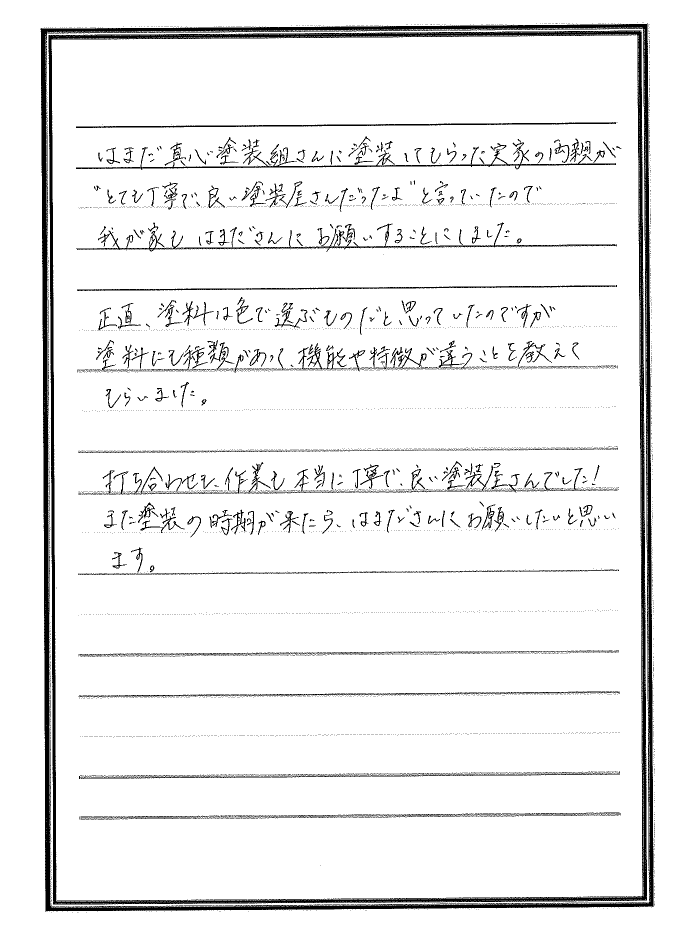 はまだ真心塗装組さんに塗装してもらった実家の両親が
"とても丁寧で、良い塗装屋さんだったよ"と言っていたので
我が家も はまださんに お願いすることにしました。
正直、塗料は色で選ぶものだと思っていたのですが
塗料にも種類があって、機能や特徴が違うことを教えて
もらいました。
打ち合わせも、作業も 本当に 丁寧で、良い塗装屋さんでした！
また塗装の時期が来たら、はまださんに お願いしたいと思い
ます。